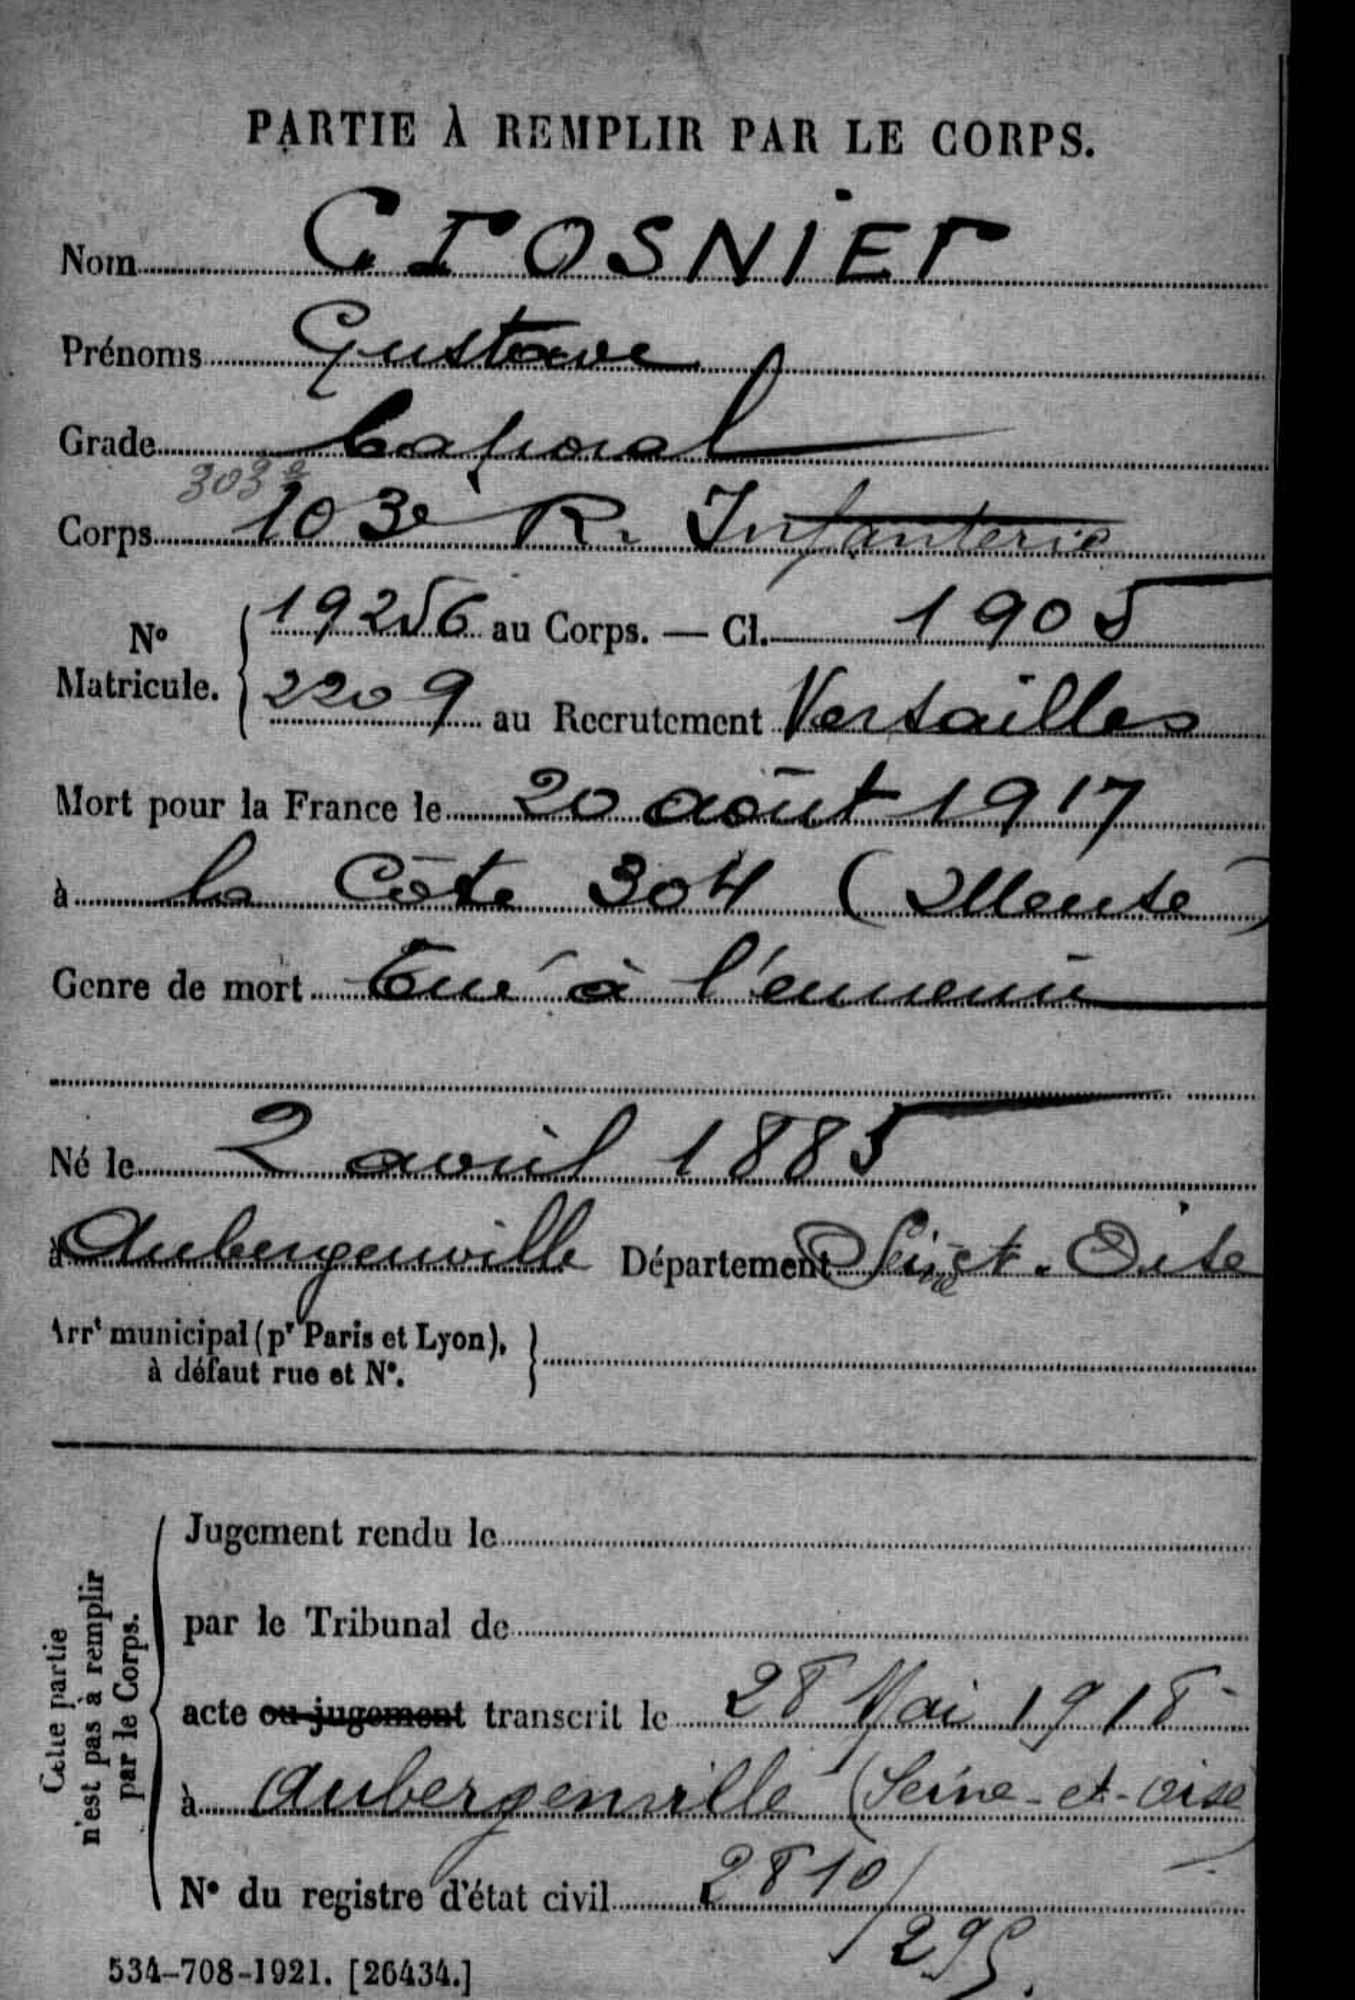 PARTIE À REMPLIR PAR LE CORPS.
Nom CrOSNiEr
Prénoms Gustave
Grade Caporal
303e
Corps 103e R. Infanterie
N° Matricule. { 19256 au Corps. — Cl. 1905
2209 au Recrutement Versailles
Mort pour la France le 20 août 1917
à la Côte 304 (Meuse)
Genre de mort Tué à l'ennemi
Né le 2 avril 1885
à Aubergenville Département Seine et. Oise
Arrt municipal (pr Paris et Lyon),
à défaut rue et N°.
Cette partie
n'est pas à remplir
par le Corps.
Jugement rendu le
par le Tribunal de
acte ou jugement transcrit le 28 Mai 1918
à Aubergenville (Seine-et-Oise)
N° du registre d'état civil 2810/
295.
534-708-1921. [26434.]